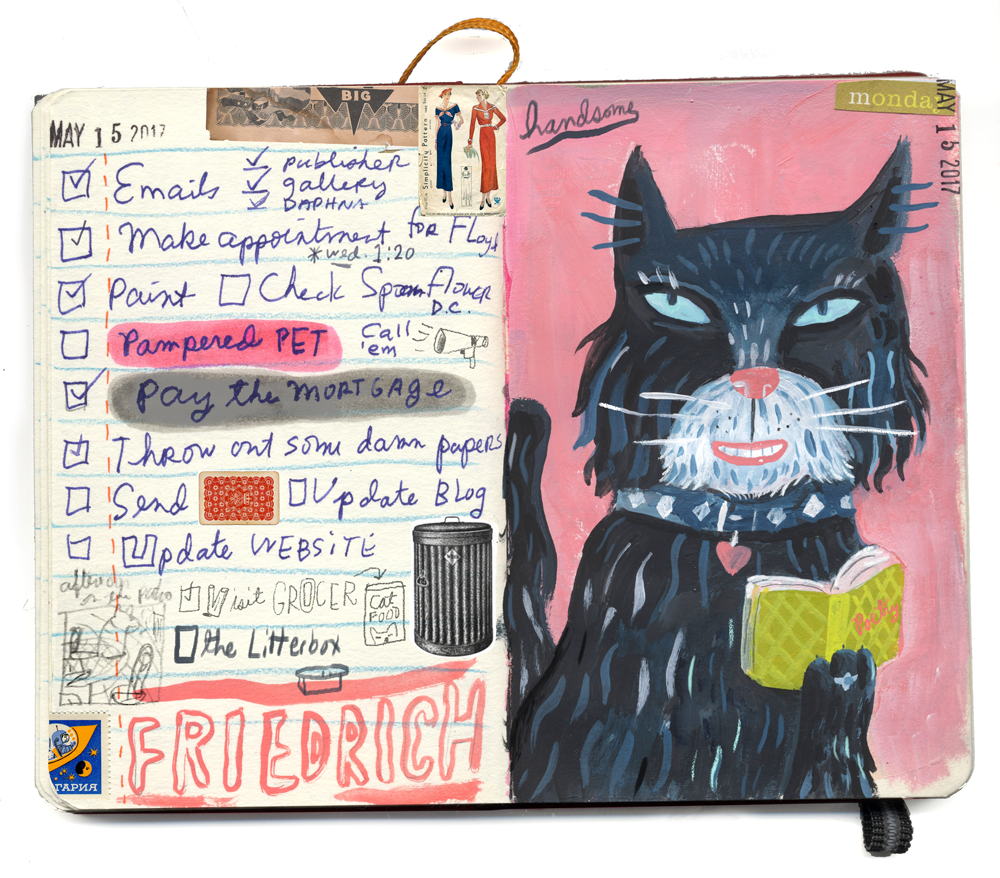 MAY 15 2017
BIG
Simplicity Pattern
Emails publisher
gallery
DAPHNA
Make appointment for Floyd
*wed. 1:20
Paint Check Spoonflower
D.C.
Pampered PET Call 'em
Pay the MORTGAGE
Throw out some damn papers
Send Update Blog
Update WEBSITE
Visit GROCER
Cat
FOOD
the Litterbox
FRIEDRICH
ГАРИЯ
handsome
monda
MAY 15 2017
Poetry